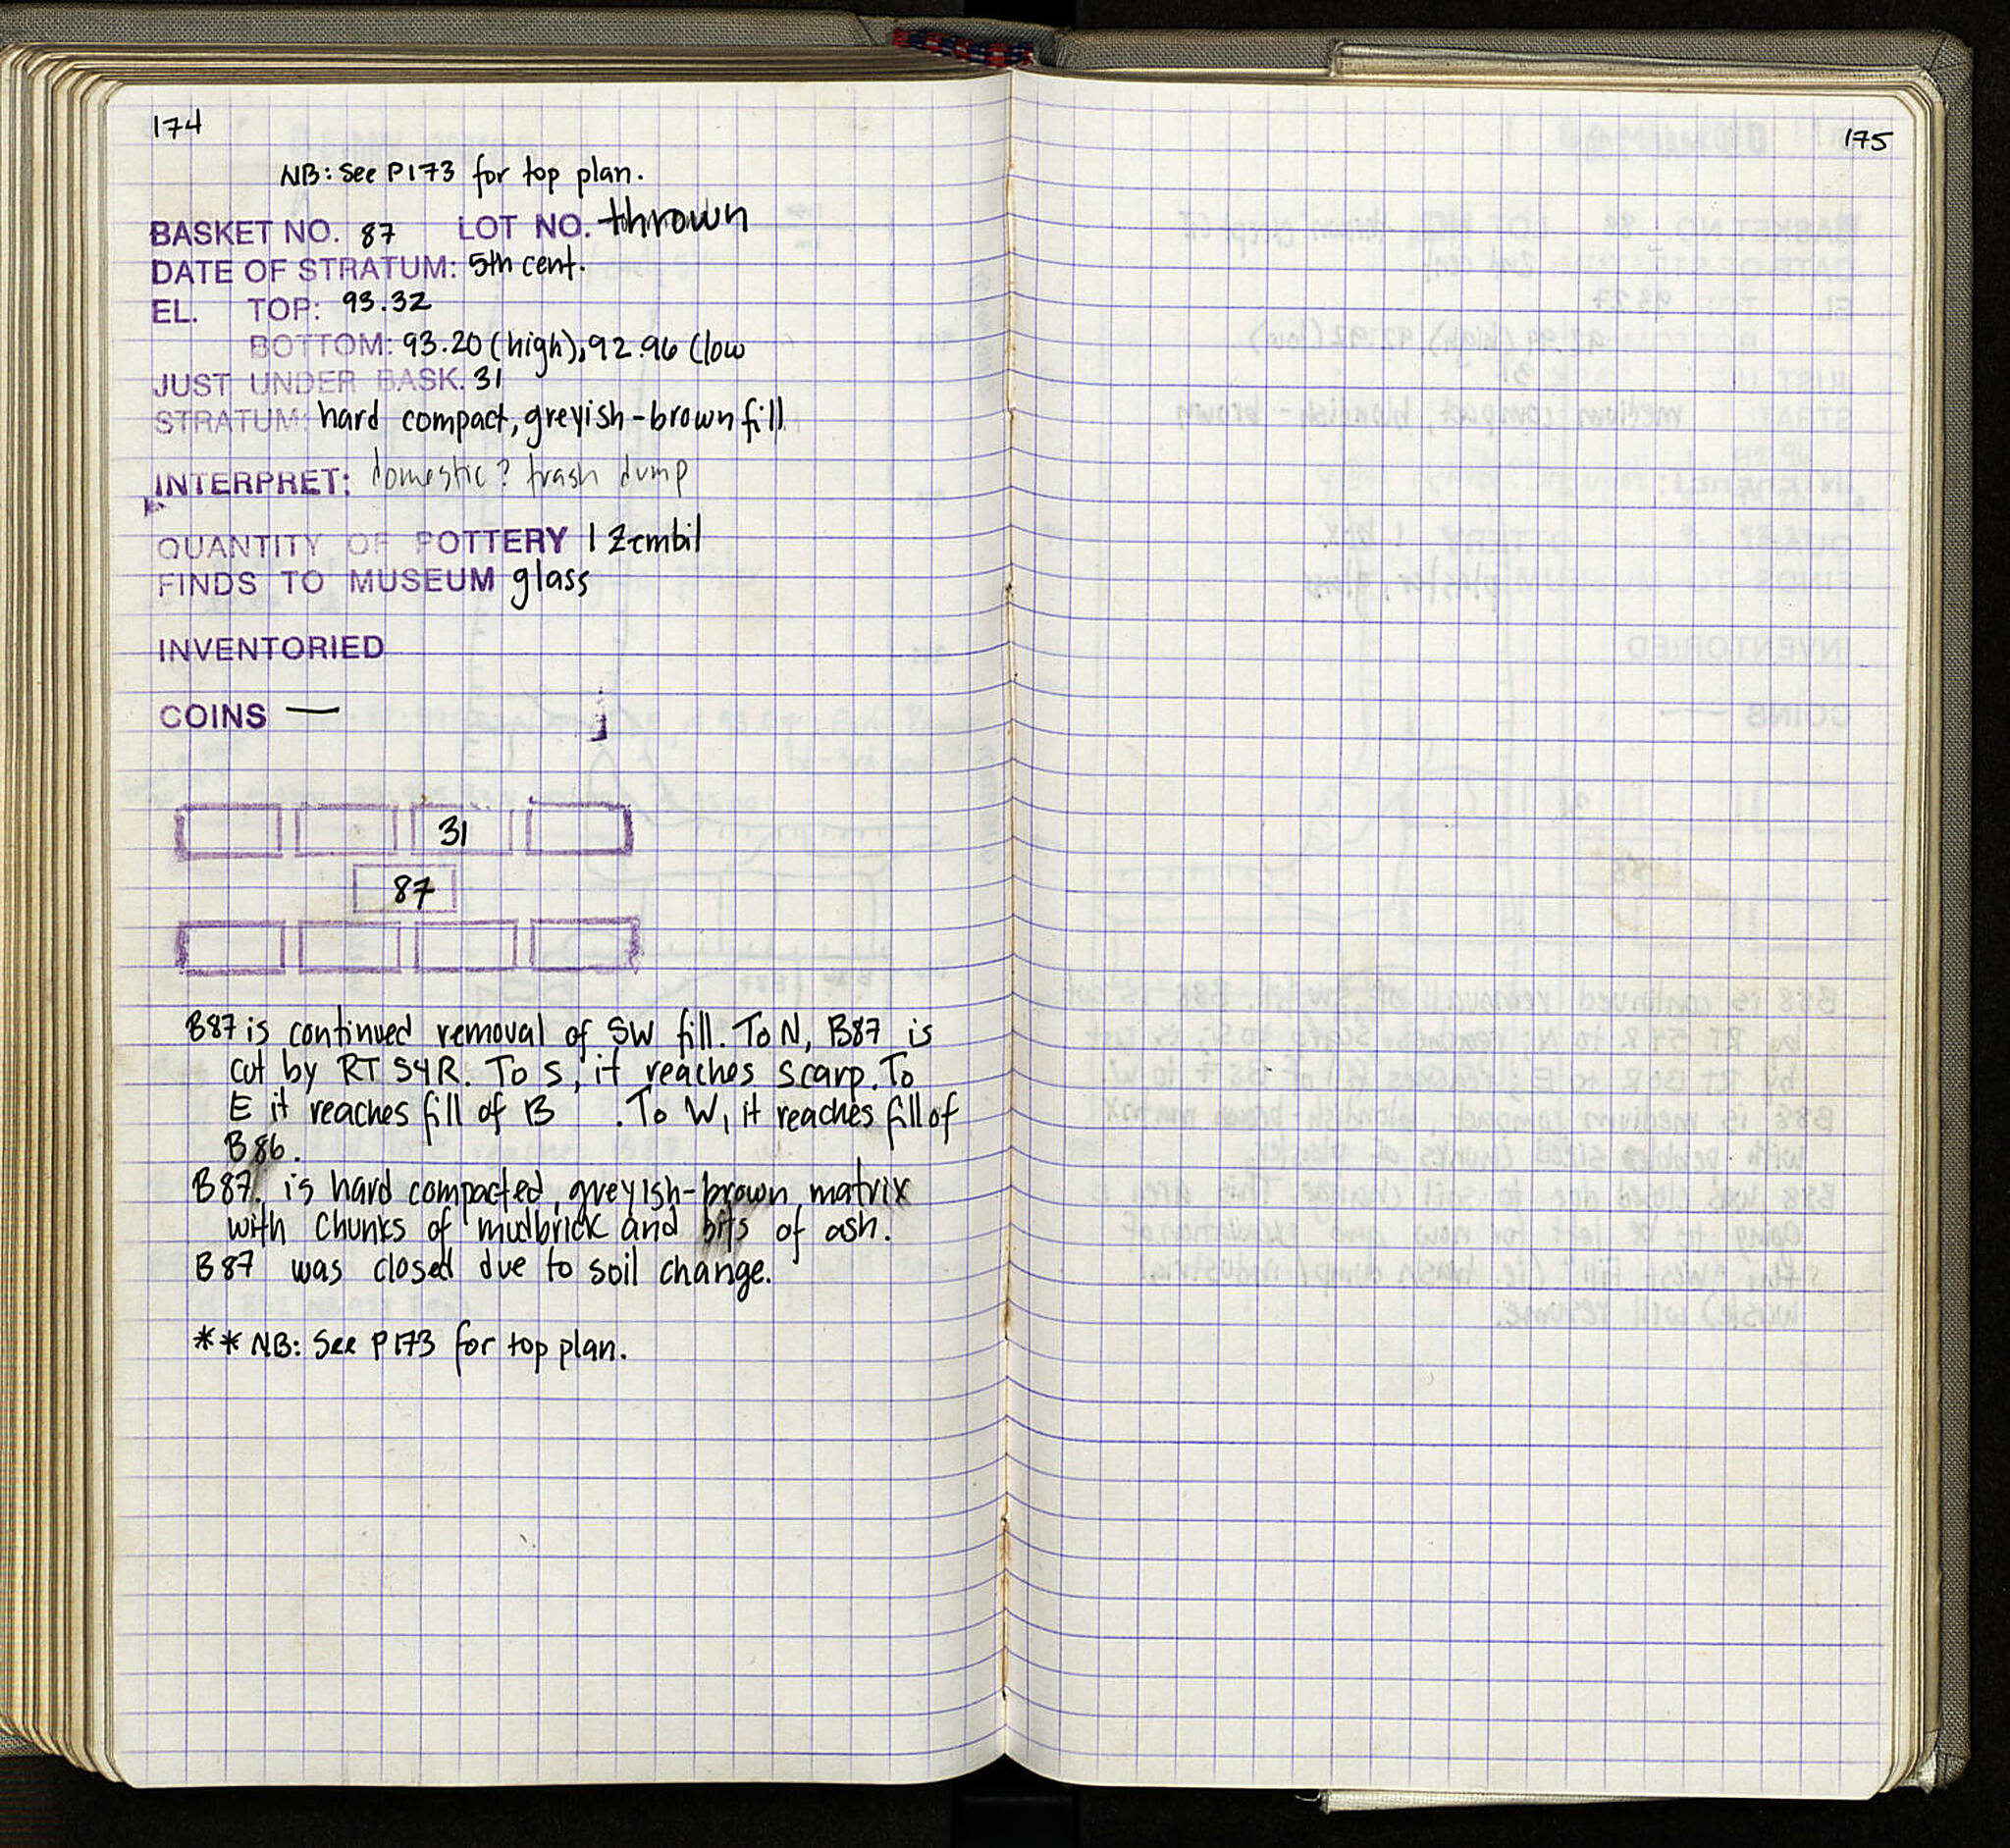 174
NB: See P173 for top plan.
BASKET NO. 87 LOT NO. thrown
DATE OF STRATUM: 5th cent.
EL. TOP: 93.32
BOTTOM: 93.20 (high), 92.96 (low
JUST UNDER BASK. 31
STRATUM: hard compact, greyish-brown fill
INTERPRET: domestic? trash dump
QUANTITY OF POTTERY 1 Zembil
FINDS TO MUSEUM glass
INVENTORIED
COINS —
31
87
B87 is continued removal of SW fill. To N, B87 is
cut by RT 54R. To S, it reaches scarp. To
E it reaches fill of B . To W, it reaches fill of
B86.
B87. is hard compacted, greyish-brown matrix
with chunks of mudbrick and bits of ash.
B87 was closed due to soil change.
**NB: See P173 for top plan.
175